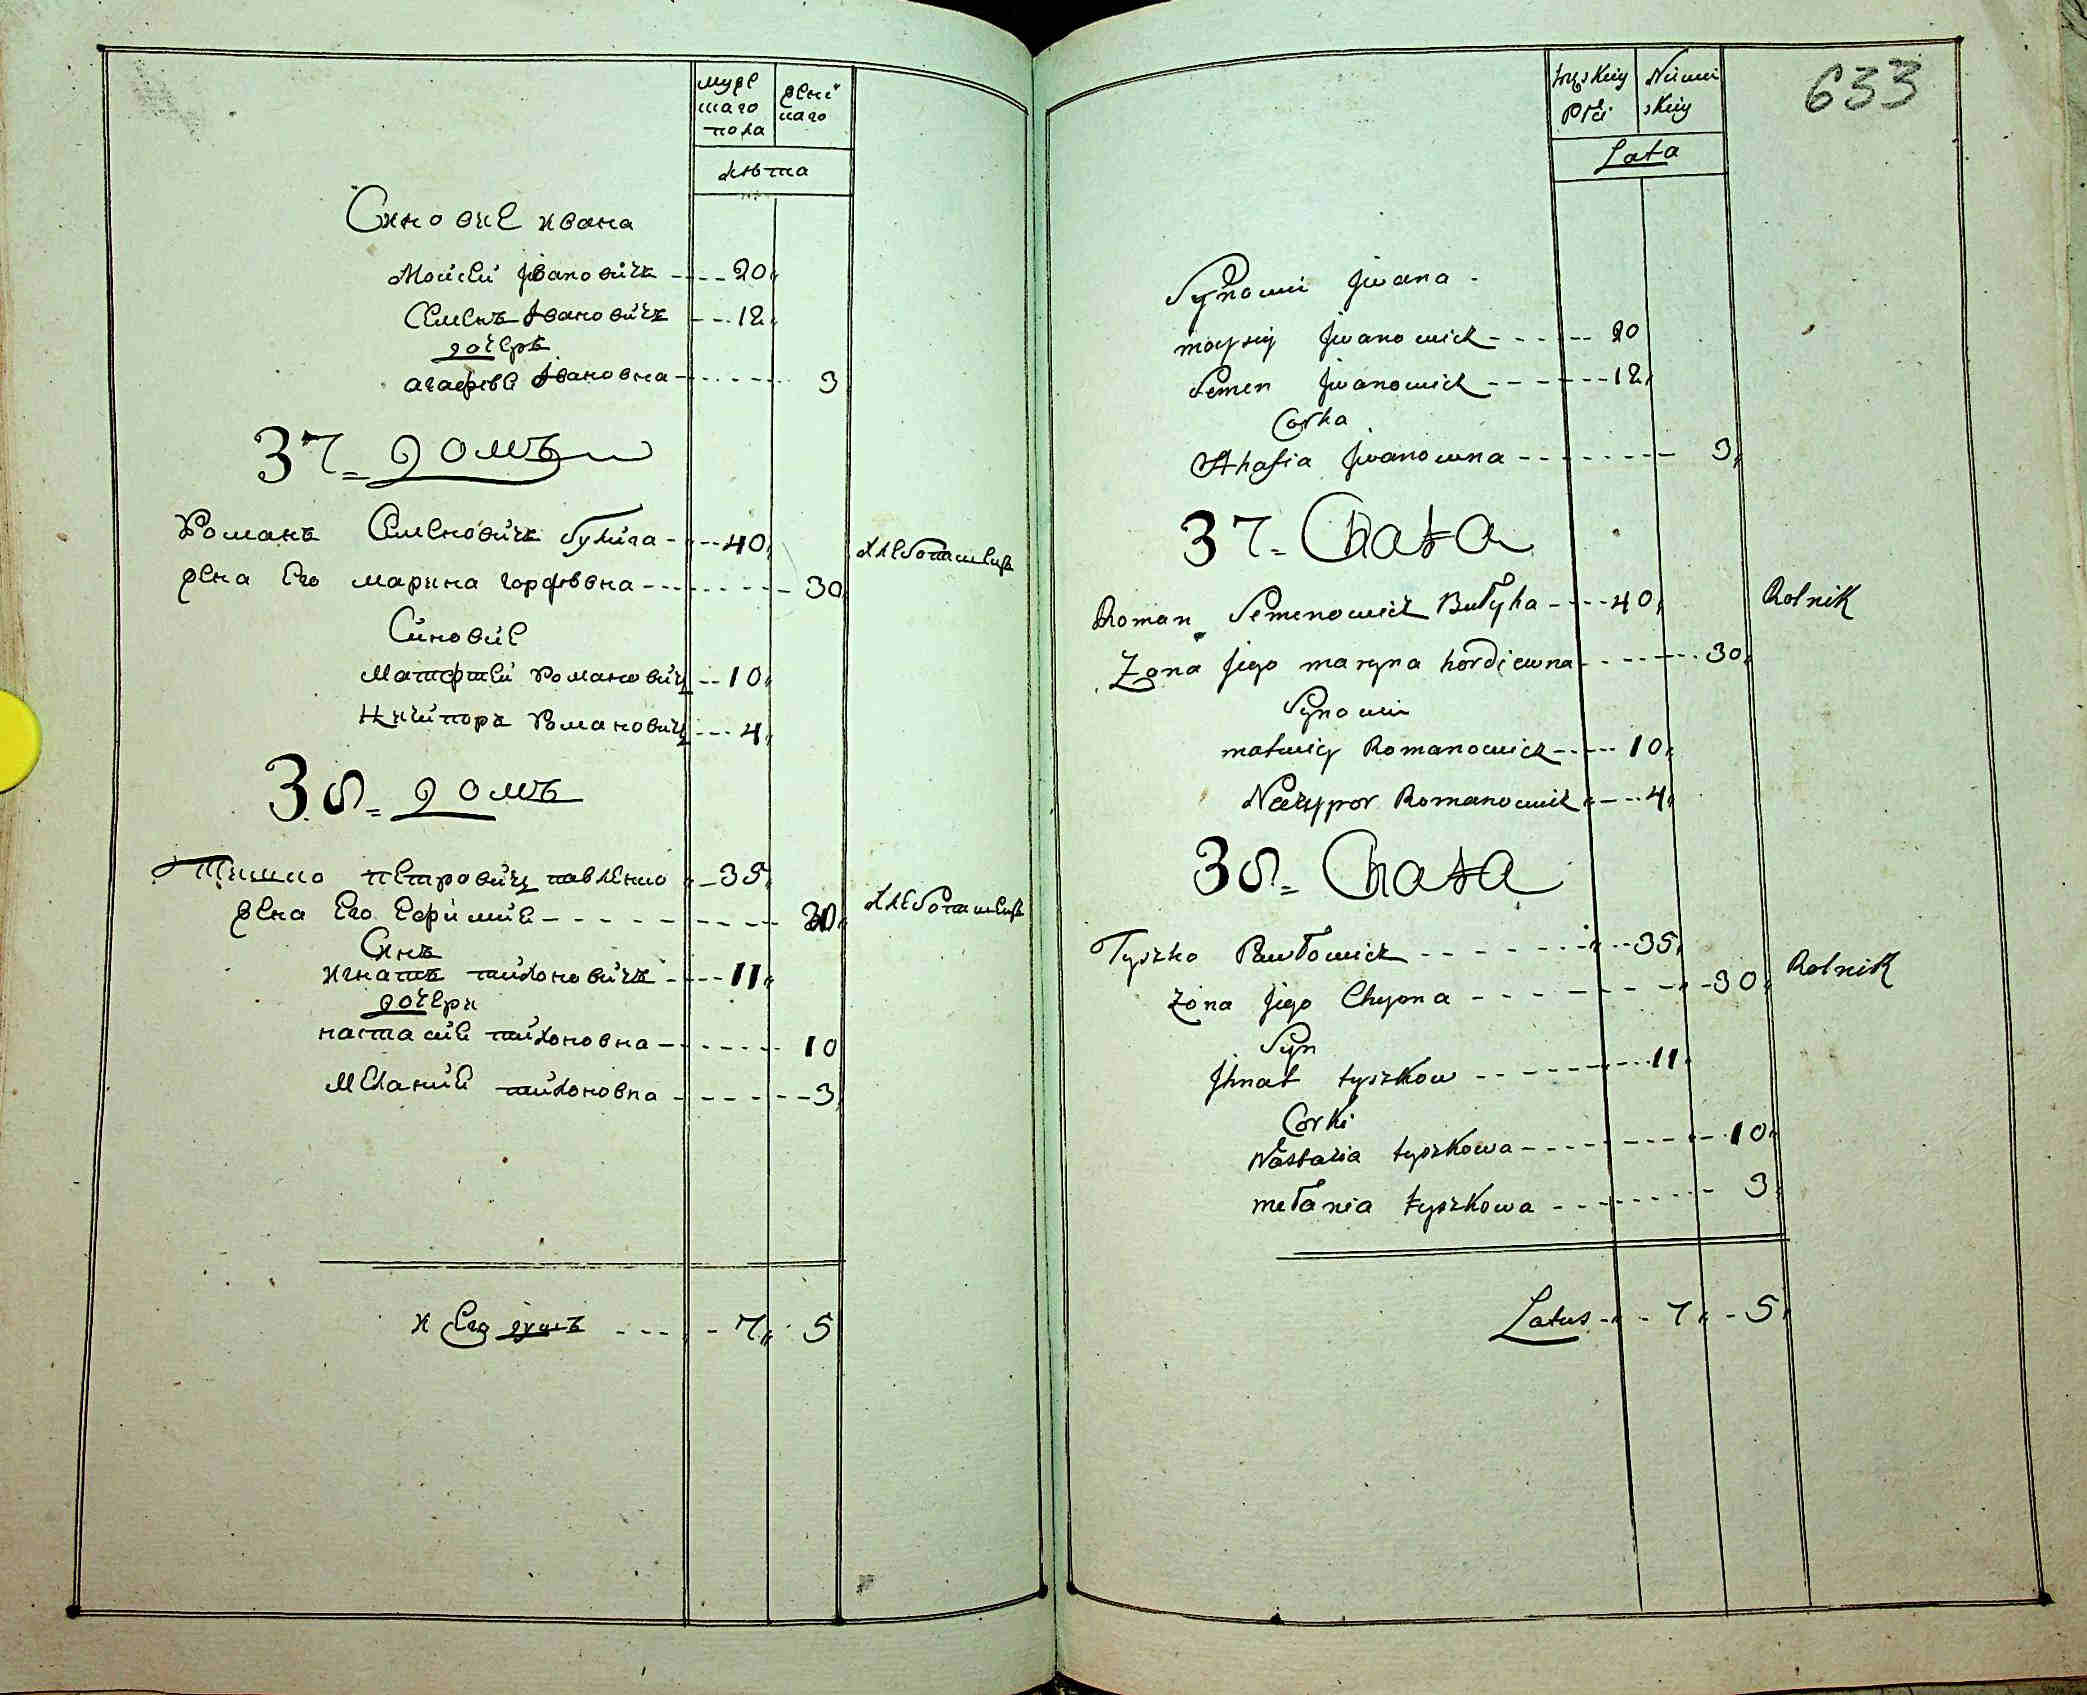 муже
скаго
пола
женс
каго
лѣта
Синовие ивана
Моисей Ивановичъ - - - 20
Семенъ Ивановичъ - - - 12
дочерь
агафия Ивановна - - - - - 3
37 = домъ
Романъ Семеновичъ булига - - - 40
хлебопашецъ
жена Его марина гордѣевна - - - - - 30
Синовие
Матфией Романовичъ - - 10
Ничипоръ Романовичъ - - - 4
38 = домъ
Тишко петровичъ павленко - 35
жена Его Ефимия - - - - - - - - 30
хлебопашецъ
Синъ
игнатъ тихоновичъ - - - 11
дочери
настасия тихоновна - - - - - 10
Мелания тихоновна - - - - - - 3
и Его душъ - - - - 7 5
męzkiey
Płci
Niewi
skiey
633
Lata
Synowie Jwana -
moysiey Jwanowicz - - - - - 20
Semen Jwanowicz - - - - - - 12
Corka
Ahafia Jwanowna - - - - - - - 3
37 = Chata
Roman Semenowicz Bułyha - - - 40
Rolnik
Zona Jego maryna hordiewna - - - - - 30
Synowie
matwiey Romanowicz - - - - 10
Neczypor Romanowicz - - - 4
38 = Chata
Tyszko Pawłowicz - - - - - - - 35
Rolnik
Zona Jego Chyma - - - - - - - 30
Syn
Jhnat tyszkow - - - - - - - 11
Corki
Nastazia tyszkowa - - - - - - - 10
mełania tyszkowa - - - - - - - 3
Latus - - 7 - 5